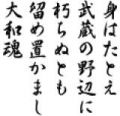 身はたとえ
武蔵の野辺に
朽ちぬとも
留め置かまし
大和魂